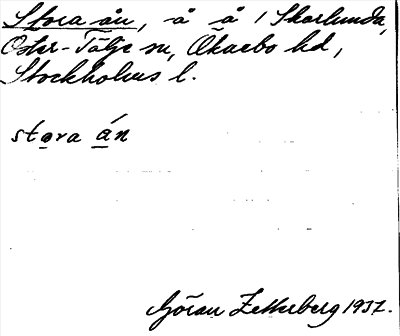 Stora ån, å å i Skarlunda,
Öster-Tälje sn, Öknebo hd,
Stockholms l.
stora án
Göran Zetterberg 1937.